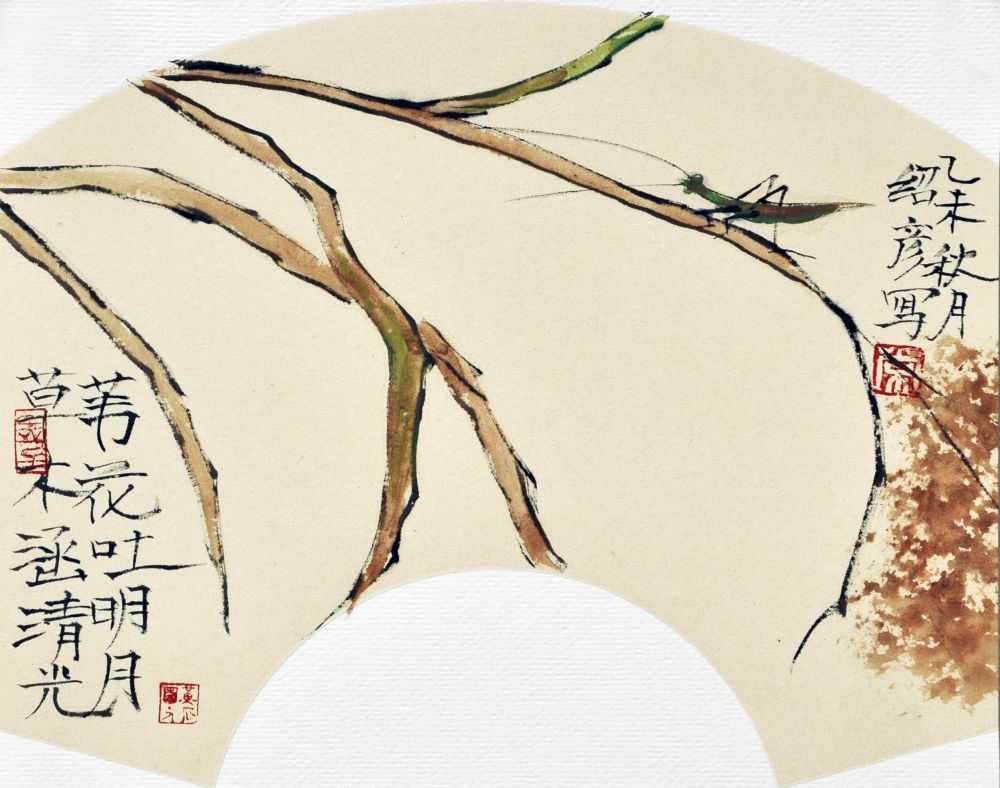 乙未秋月
绍彦写
苇花吐明月
草木涵清光